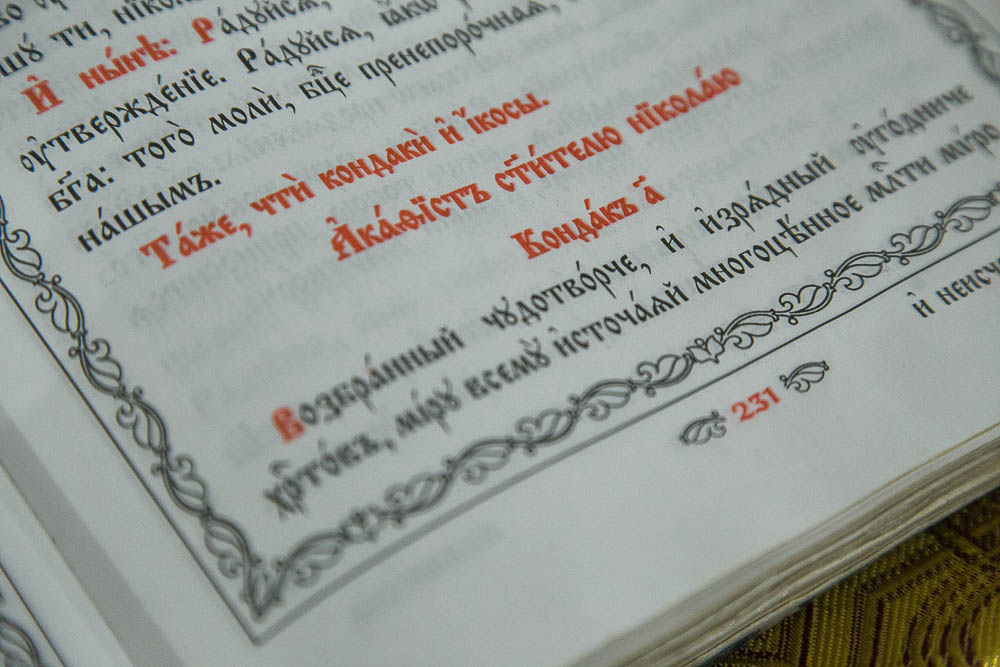 шꙋ́ ти, нїко
И҆ ны́нѣ: Ра́дꙋйсѧ,
ᲂу҆твержде́нїе. Ра́дꙋйсѧ, ꙗ҆́кѡ
бг҃а: того̀ молѝ, бц҃е пренепоро́чнаѧ,
на́шымъ.
Та́же, чтѝ кондакѝ и҆ і҆́косы.
А҆ка́ѳїстъ ст҃и́телю нїкола́ю
Конда́къ а҃
Возбра́нный чꙋдотво́рче, и҆ и҆зрѧ́дный ᲂу҆го́дниче
хрⷭ҇то́въ, мі́рꙋ всемꙋ̀ и҆сточа́ѧй многоцѣ́нное млⷭ҇ти мѵ́ро
и҆ неисче
231